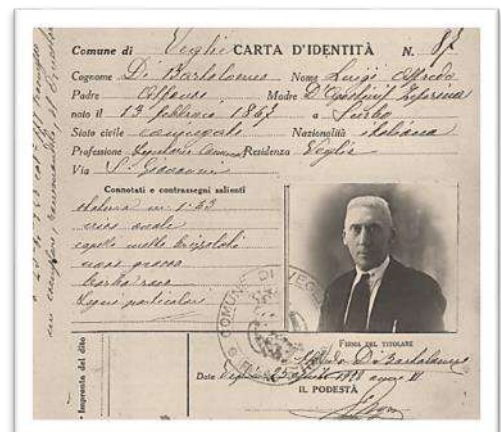 Comune di Veglie CARTA D'IDENTITÀ N. 87
Cognome Di Bartolomeo Nome Luigi Alfredo
Padre Alfonso Madre D'Agostini Zefferina
nato il 13 febbraio 1867 a Surbo
Stato civile coniugato Nazionalità italiana
Professione Segretario Residenza Veglie
Via S. Giovanni
Connotati e contrassegni salienti
statura m. 1.63
viso ovale
capelli molto brizzolati
naso grosso
barba rasa
Segni particolari
COMUNE DI VEGLIE
FIRMA DEL TITOLARE
Alfredo Di Bartolomeo
Data Veglie 25
IL PODESTÀ
Impronta del dito